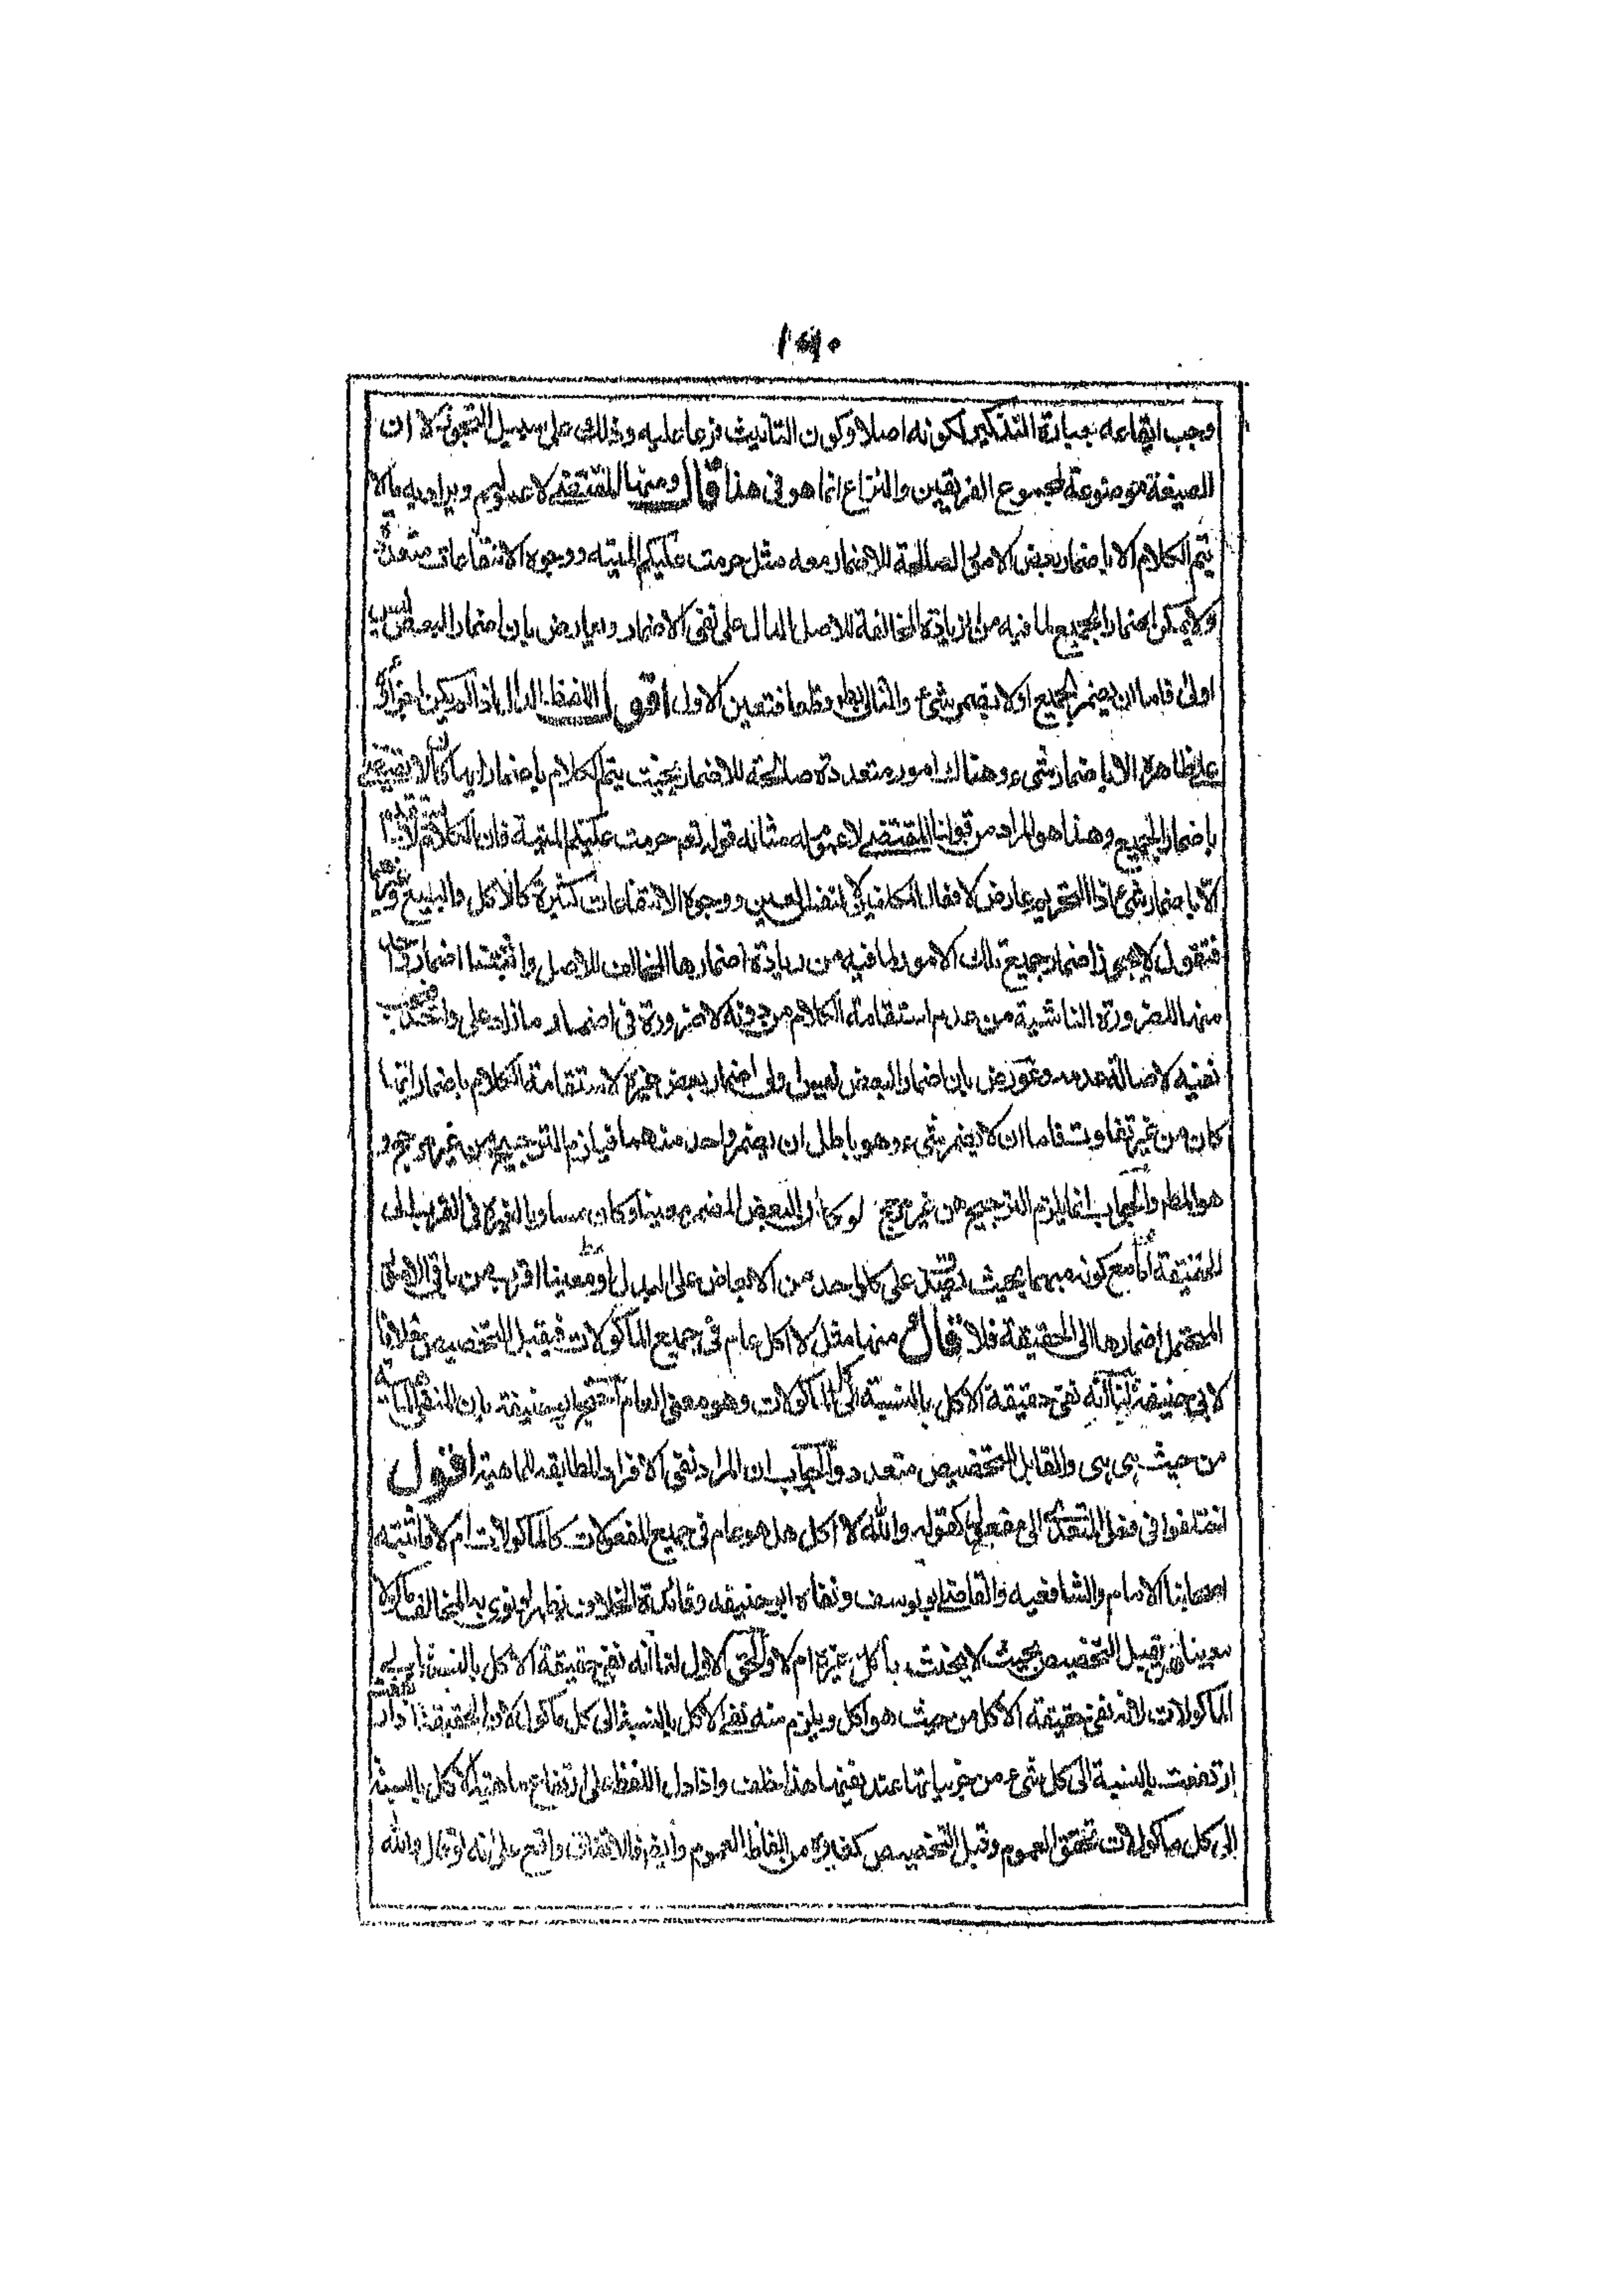 وجب ايقاعه بعبارة التذكير لكونه اصلا وكون التانيث فرعا عليه وذلك على سبيل التجوز لا ان
الصيغة موضوعة لمجموع الفريقين والنزاع انما هو فى هذا قال ومنها المقتضى لا عموم له ويراد به ما لا
يتم الكلام الا باضمار بعض الامور الصالحة للاضمار معه مثل حرمت عليكم الميته ووجوه الانتفاعات متعددة
ولا يمكن اضمار الجميع لما فيه من الزيادة المخالفة للاصل الدال على نفى الاضمار ويعارض بان اضمار البعض ليس
اولى فاما ان يضمر الجميع او لا يضمر شئ والثانى باطل قطعا فتعين الاول اقول اللفظ الدال اذا لم يكن اجراؤه
على ظاهره الا باضمار شئ وهناك امور متعددة صالحة للاضمار بحيث يتم الكلام باضمار ايها كان لا يقتضى
باضمار الجميع وهذا هو المراد من قولنا المقتضى لا عموم له مثاله قوله تعم حرمت عليكم الميتة فان الكلام لا
الا باضمار شئ اذ التحريم عارض لافعال المكلفين لا لنفس العين ووجوه الانتفاعات كثيرة كالاكل والبيع وغيرهما
فنقول لا يجوز اضمار جميع تلك الامور لما فيه من زيادة اضمارها المخالف للاصل واثبتنا اضمار واحد
منها للضرورة الناشية من عدم استقامة الكلام من دونه ولا ضرورة فى اضمار ما زاد على واحد فيجب
نفيه لاصالة عدمه وعورض بان اضمار البعض ليس اولى من اضمار بعض غيره لاستقامة الكلام باضمار ايها
كان من غير تفاوت فاما ان لا يضمر شئ وهو باطل او يضمر واحد منهما فيلزم الترجيح من غير مرجح و
هو المطلم والجواب انما يلزم الترجيح من غير مرجح لو كان البعض المضمر معينا وكان مساويا لغيره فى القرب الى
الحقيقة اما مع كونه مبهما بحيث يصدق على كل واحد من الابعاض على البدل او معينا اقرب من باقى الامور
المحتمل اضمارها الى الحقيقة فلا قال منها مثل لا اكل عام فى جميع الماكولات فيقبل التخصيص خلافا
لابى حنيفة لنا انه نفى حقيقة الاكل بالنسبة الى كل الماكولات وهو معنى العام احتج ابو حنيفة بان المنفى الماهية
من حيث هى هى والقابل للتخصيص متعدد والجواب ان المراد نفى الافراد المطابقة للماهية اقول
اختلفوا فى فعل المتعدى الى مفعول كقوله والله لا اكل هل هو عام فى جميع المفعولات كالماكولات ام لا فاثبته
اصحابنا الامامية والشافعيه والقاضى ابو يوسف ونفاه ابو حنيفه وفائدة الخلاف تظهر لو نوى به الحالف ماكولا
معينا هل يقبل التخصيص بحيث لا يحنث باكل غيره ام لا والحق الاول لنا انه نفى حقيقة الاكل بالنسبة الى
الماكولات لانه نفى حقيقة الاكل من حيث هو اكل ويلزم منه نفى الاكل بالنسبة الى كل ماكول لان الحقيقة اذا
ارتفعت بالنسبة الى كل شئ من جزئياتها عند نفيها هذا خلف واذا دل اللفظ على ارتفاع ماهية الاكل بالنسبة
الى كل ماكولات تحقق العموم وقبل التخصيص كغيره من الفاظ العموم وايضا فالاتفاق واقع على انه لو قال والله